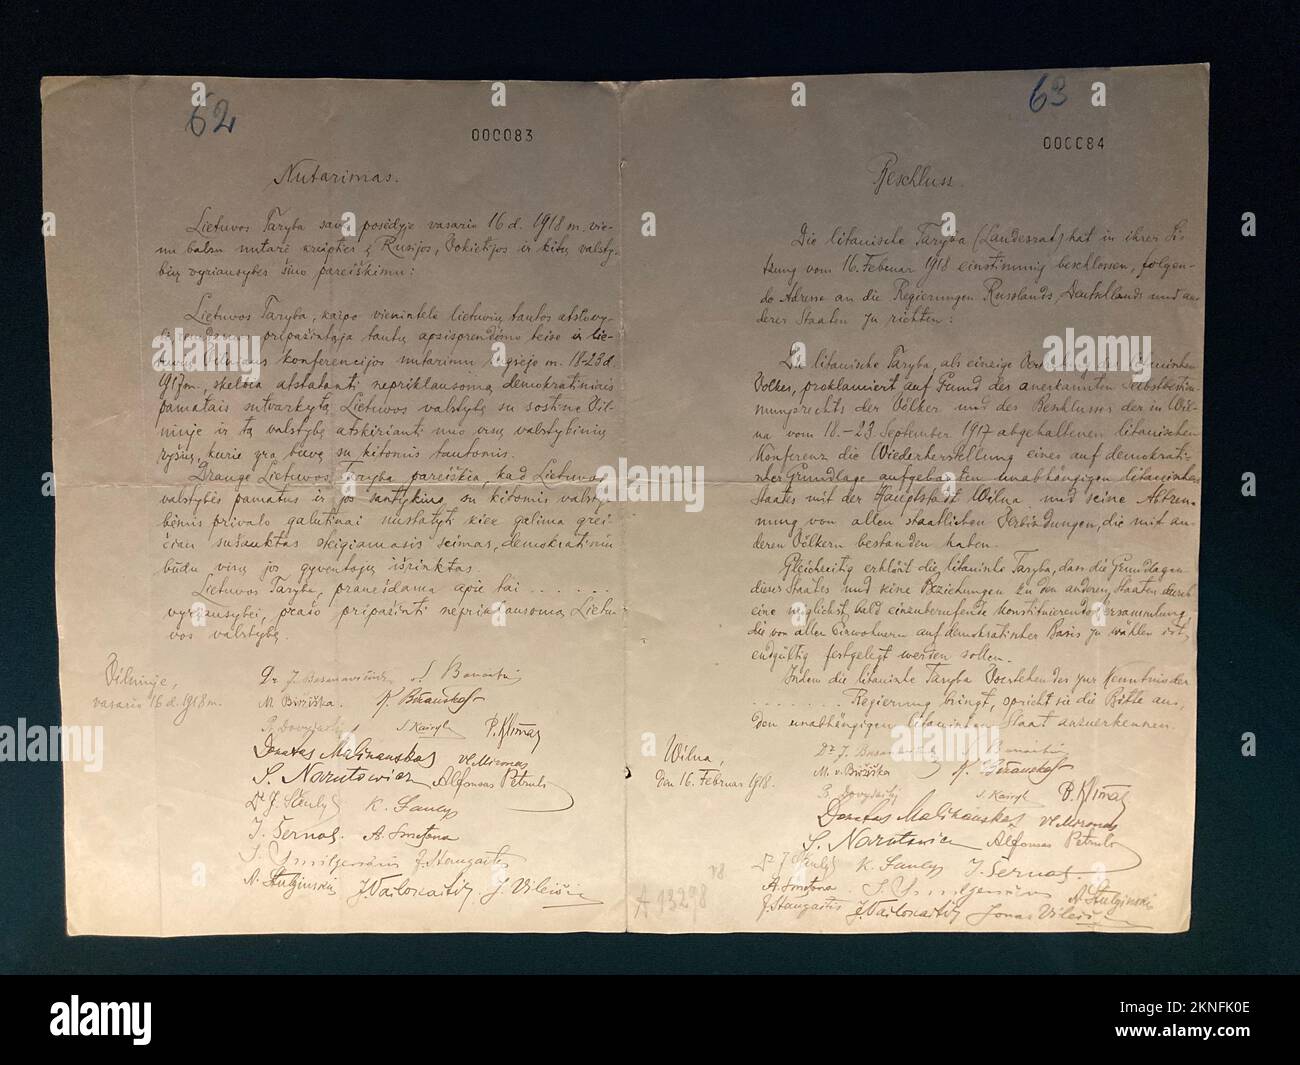 62
000083
Nutarimas.
Lietuvos Taryba savo posėdyje vasario 16 d. 1918 m. vie-
nu balsu nutarė kreiptis į Rusijos, Vokietijos ir kitų valsty-
bių vyriausybes šiuo pareiškimu:
Lietuvos Taryba, kaipo vienintelė lietuvių tautos atstovy-
bė, pripažintąja tautų apsisprendimo teise ir lie-
tuvių Vilniaus konferencijos nutarimu rugsėjo m. 18-23 d.
1917 m., skelbia atstatanti nepriklausomą, demokratiniais
pamatais sutvarkytą Lietuvos valstybę su sostine Vil-
niuje ir tą valstybę atskirianti nuo visų valstybinių
ryšių, kurie yra buvę su kitomis tautomis.
Drauge Lietuvos Taryba pareiškia, kad Lietuvos
valstybės pamatus ir jos santykius su kitomis valsty-
bėmis privalo galutinai nustatyti kiek galima grei-
čiau sušauktas steigiamasis seimas, demokratiniu
būdu visų jos gyventojų išrinktas.
Lietuvos Taryba, pranešdama apie tai . . . . . .
vyriausybei, prašo pripažinti nepriklausomą Lietu-
vos valstybę.
Vilniuje,
vasario 16 d. 1918 m.
Dr. J. Basanavičius S. Banaitis
M. Biržiška. K. Bizauskas
P. Dovydaitis S. Kairys P. Klimas
Donatas Malinauskas Vl. Mironas
S. Narutowicz Alfonsas Petrulis
Dr J. Šaulys K. Šaulys
J. Šernas A. Smetona
J. Smilgevičius J. Staugaitis
A. Stulginskis J. Vailokaitis J. Vileišis
63
000084
Beschluss.
Die litauische Taryba (Landesrat) hat in ihrer Si-
tzung vom 16. Februar 1918 einstimmig beschlossen, folgen-
de Adresse an die Regierungen Russlands, Deutschlands und an-
derer Staaten zu richten:
Die litauische Taryba, als einzige der litauischen
Volkes, proklamiert auf Grund des anerkannten Selbstbestim-
mungsrechts der Völker und des Beschlusses der in Wil-
na vom 18.-23. September 1917 abgehaltenen litauischen
Konferenz die Wiederherstellung eines auf demokrati-
scher Grundlage aufgebauten unabhängigen litauischen
Staates mit der Hauptstadt Wilna und seine Abtren-
nung von allen staatlichen Verbindungen, die mit an-
deren Völkern bestanden haben.
Gleichzeitig erklärt die litauische Taryba, dass die Grundlagen
dieses Staates und seine Beziehungen zu den anderen Staaten durch
eine möglichst bald einzuberufende konstituierende Versammlung,
die von allen Einwohnern auf demokratischer Basis zu wählen ist,
endgültig festgelegt werden sollen.
Indem die litauische Taryba Vorstehendes zur Kenntnis der
. . . . . . . Regierung bringt, spricht sie die Bitte aus,
den unabhängigen litauischen Staat anzuerkennen.
Wilna,
den 16. Februar 1918.
Dr J. Basanavičius S. Banaitis
M. v. Biržiška K. Bizauskas
P. Dovydaitis S. Kairys P. Klimas
Donatas Malinauskas Vl. Mironas
S. Narutowicz Alfonsas Petrulis
Dr J. Šaulys K. Šaulys J. Šernas
A. Smetona J. Smilgevičius A. Stulginskis
J. Staugaitis J. Vailokaitis Jonas Vileišis
A 13298
alamy
Image ID: 2KNFK0E
www.alamy.com